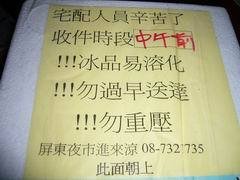 宅配人員辛苦了
收件時段中午前
!!!冰品易溶化
!!!勿過早送達
!!!勿重壓
屏東夜市進來涼 08-7321735
此面朝上